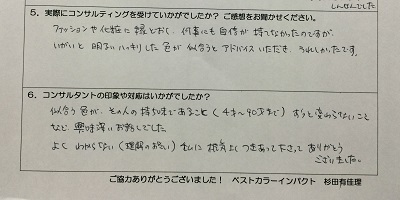 しんせんでした
5. 実際にコンサルティングを受けていかがでしたか? ご感想をお聞かせください。
ファッションや化粧に縁どおく、何事にも自信が持てなかったのですが、
いがいと明るいハッキリした色が似合うとアドバイスいただき、うれしかったです。
6. コンサルタントの印象や対応はいかがでしたか?
似合う色が、その人の持ち味であること(4才〜90才まで)ずっと変わらないこと
など、興味深いお話しでした
よくわからない(理解のおそい)私に根気よくつきあって下さって ありがとう
ございました。
ご協力ありがとうございました! ベストカラーインパクト 杉田有佳理